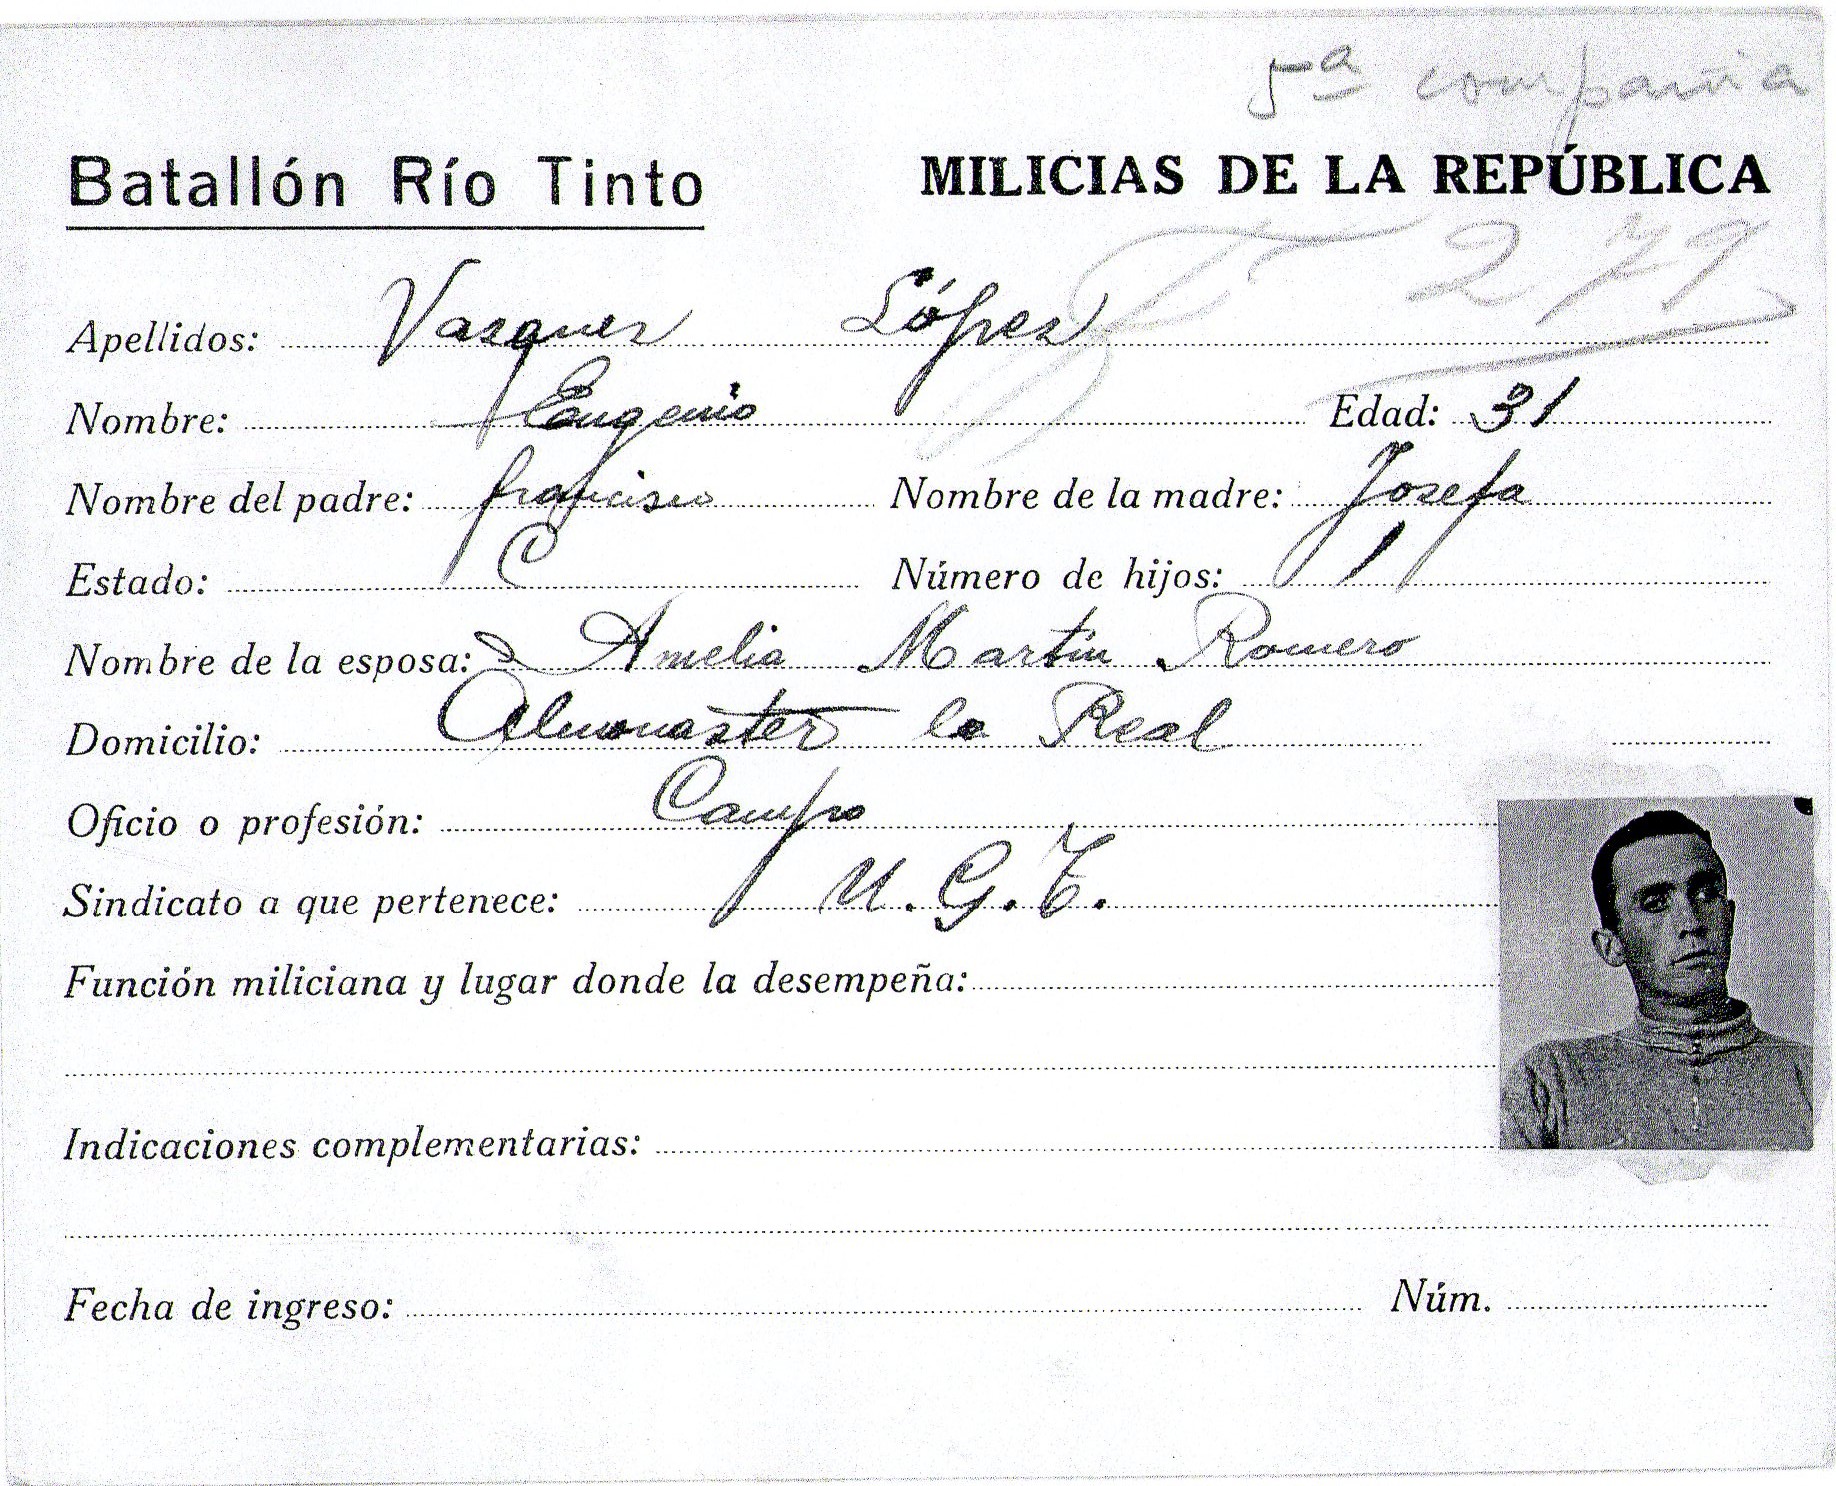 5ª compañia
Batallón Río Tinto MILICIAS DE LA REPÚBLICA
279
Apellidos: Vasques López
Nombre: Eugenio Edad: 31
Nombre del padre: francisco Nombre de la madre: Josefa
Estado: C Número de hijos: 1
Nombre de la esposa: Amelia Martin Romero
Domicilio: Almonaster la Real
Oficio o profesión: Campo
Sindicato a que pertenece: U.G.T.
Función miliciana y lugar donde la desempeña:
Indicaciones complementarias:
Fecha de ingreso: Núm.